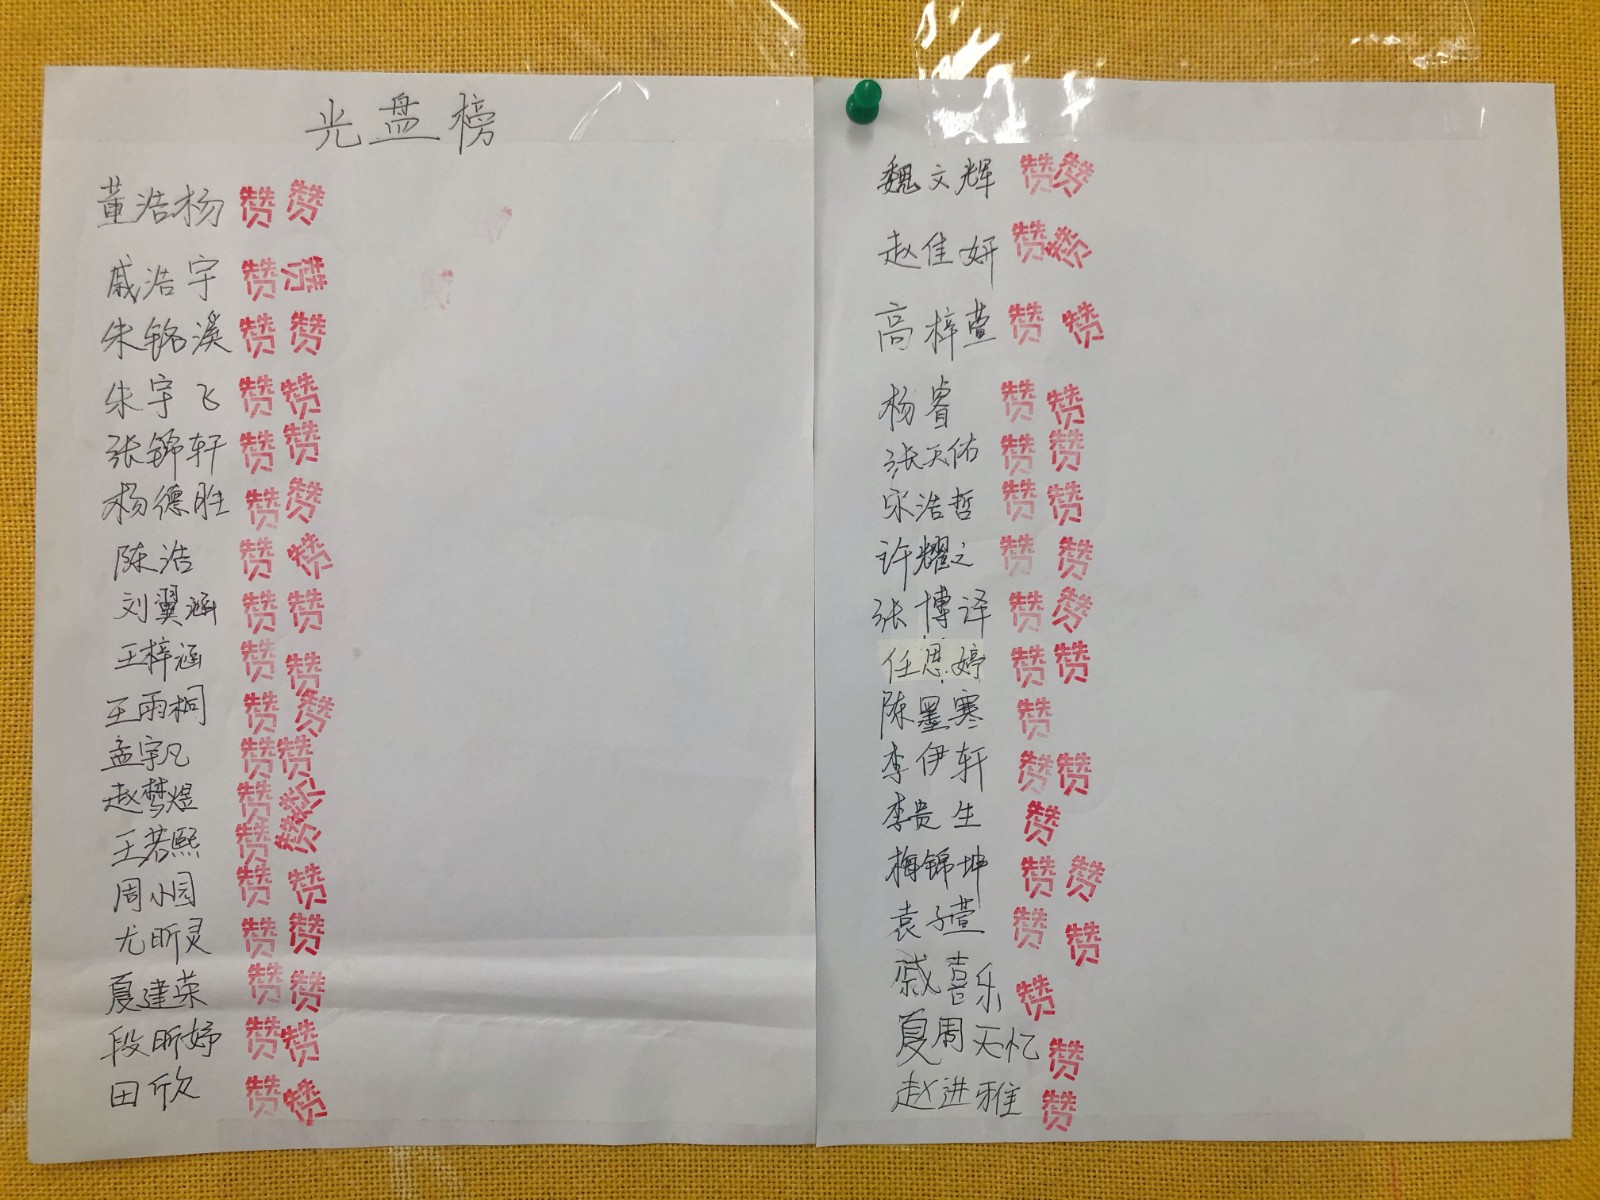 光盘榜
董浩杨 赞 赞
戚浩宇 赞 赞
朱铭溪 赞 赞
朱宇飞 赞 赞
张锦轩 赞 赞
杨德胜 赞 赞
陈浩 赞 赞
刘翼涵 赞 赞
王梓涵 赞 赞
王雨桐 赞 赞
孟宇凡 赞 赞
赵梦煜 赞 赞
王若熙 赞 赞
周小园 赞 赞
尤昕灵 赞 赞
夏建荣 赞 赞
段昕妤 赞 赞
田欣 赞 赞
魏文辉 赞 赞
赵佳妍 赞 赞
高梓萱 赞 赞
杨睿 赞 赞
张天佑 赞 赞
宋浩哲 赞 赞
许耀之 赞 赞
张博译 赞 赞
任恩婷 赞 赞
陈墨寒 赞
李伊轩 赞 赞
李贵生 赞
梅锦坤 赞 赞
袁子萱 赞 赞
戚喜乐 赞
夏周天忆 赞
赵进雅 赞